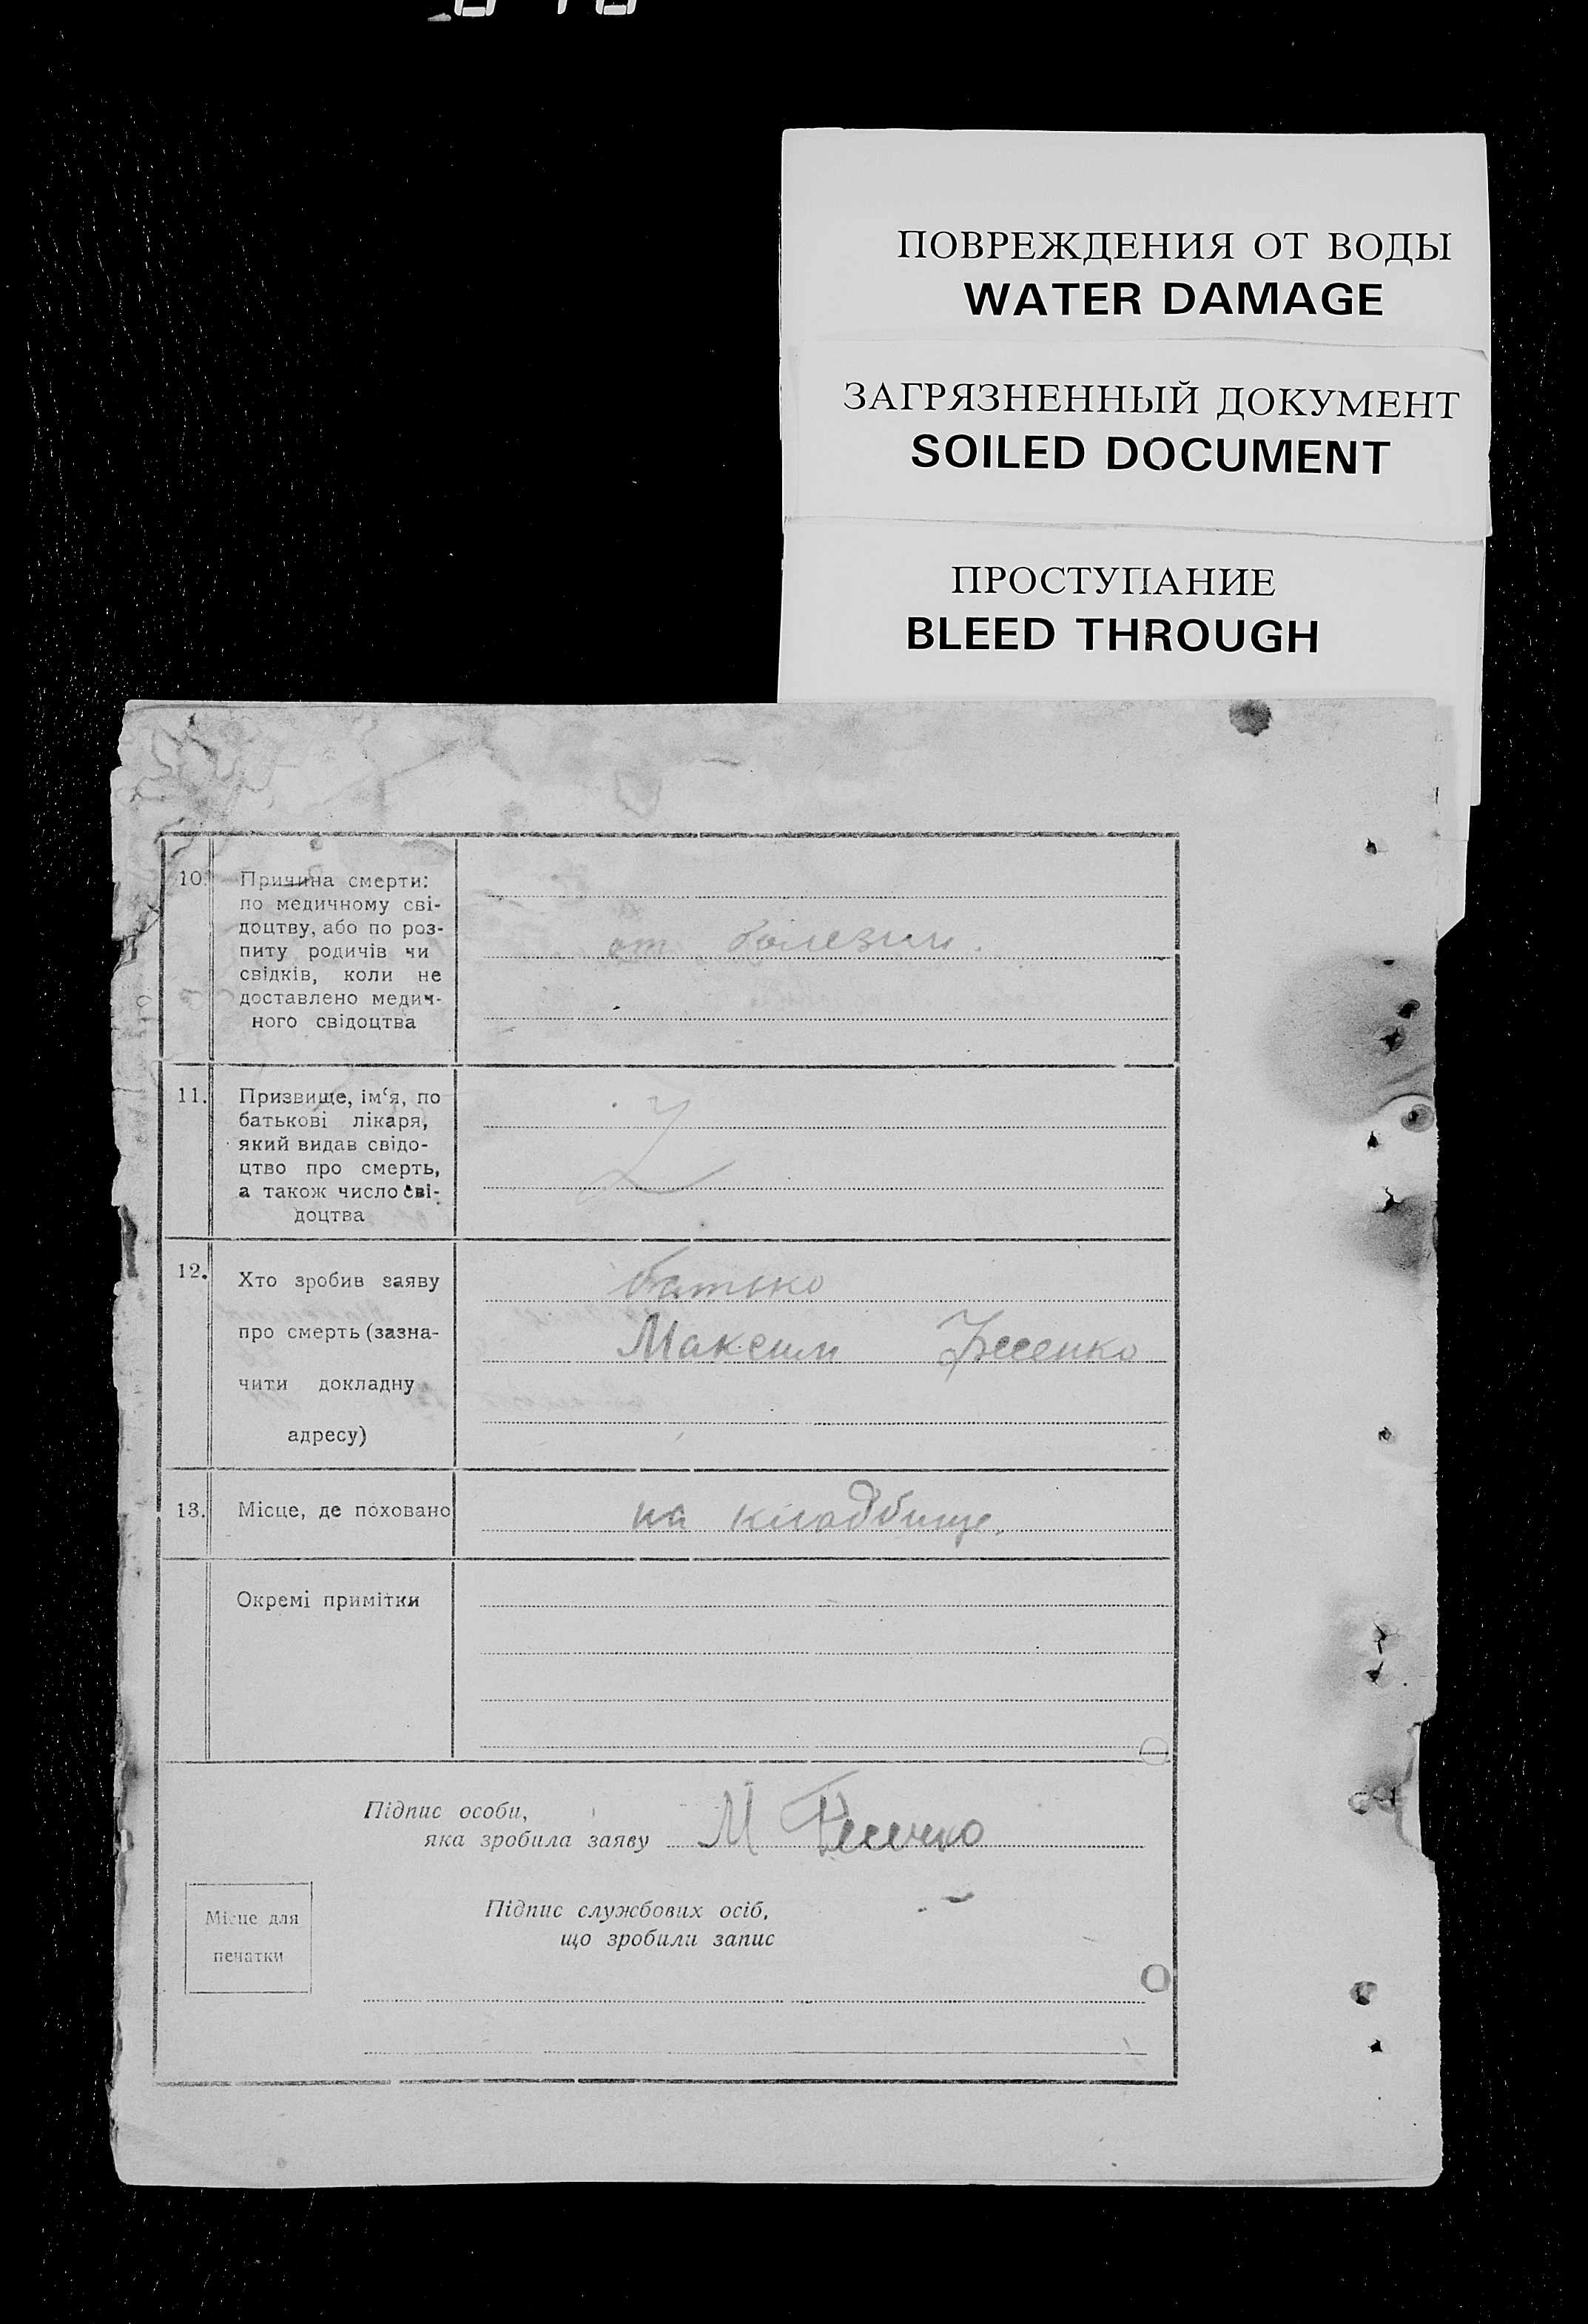 ПОВРЕЖДЕНИЯ ОТ ВОДЫ
WATER DAMAGE
ЗАГРЯЗНЕННЫЙ ДОКУМЕНТ
SOILED DOCUMENT
ПРОСТУПАНИЕ
BLEED THROUGH
10. Причина смерти:
по медичному сві-
доцтву, або по роз-
питу родичів чи
свідків, коли не
доставлено медич-
ного свідоцтва
от болезни.
11. Призвище, ім‘я, по
батькові лікаря,
який видав свідо-
цтво про смерть,
а також число сві-
доцтва
12. Хто зробив заяву
про смерть (зазна-
чити докладну
адресу)
батько
Максим
13. Місце, де поховано
на кладбище.
Окремі примітки
Підпис особи,
яка зробила заяву М
Місце для
печатки
Підпис службових осіб,
що зробили запис